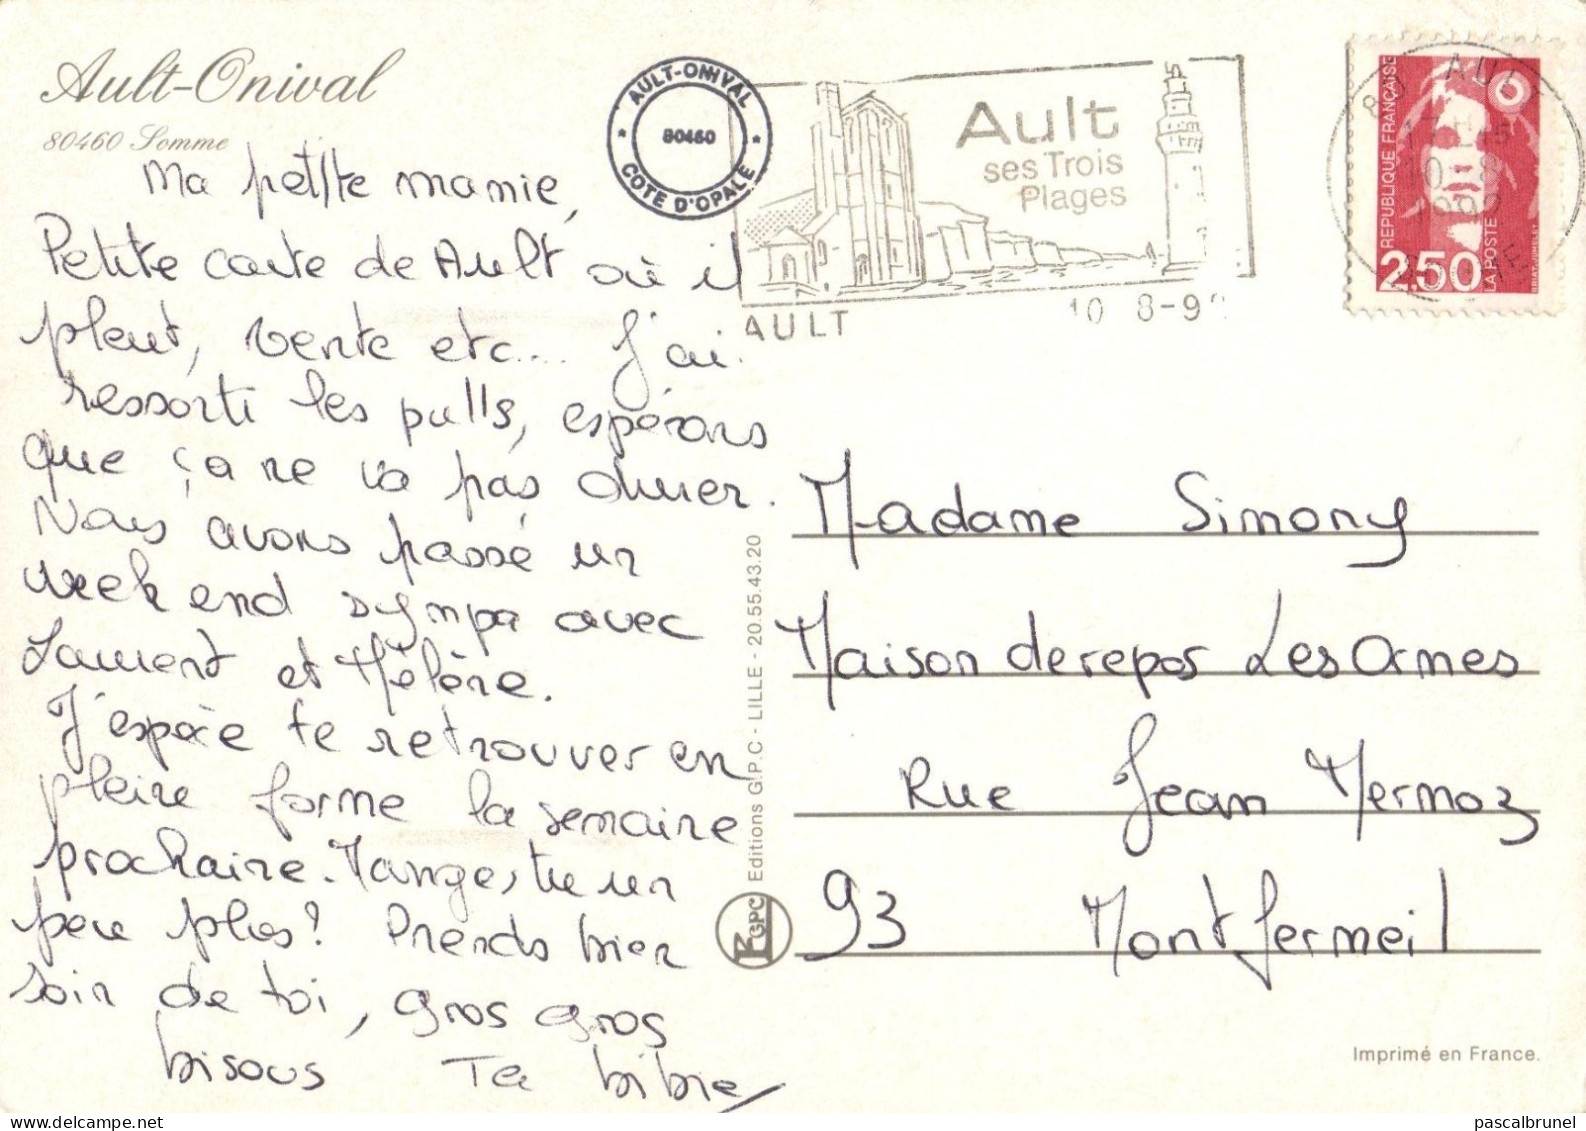 Ault-Onival
80460 Somme
Ma petite mamie,
Petite carte de Ault où il
pleut, vente etc... J'ai
ressorti les pulls, espérons
que ça ne va pas durer.
Nous avons passé un
week end sympa avec
Laurent et Hélène.
J'espère te retrouver en
pleine forme la semaine
prochaine. Manges, tu un
peu plus? Prends bien
soin de toi, gros gros
bisous Ta bibie
AULT-ONIVAL
80460
COTE D'OPALE
Ault
ses Trois
Plages
AULT
10 8-9
80 AULT
10 -8
1992
SOMME
REPUBLIQUE FRANÇAISE
2.50
LA POSTE
BRIAT. JUMELET
Editions G.P.C - LILLE - 20.55.43.20
GPC
Madame Simony
Maison de repos Les Ormes
Rue Jean Mermoz
93 Montfermeil
Imprimé en France.
pascalbrunel